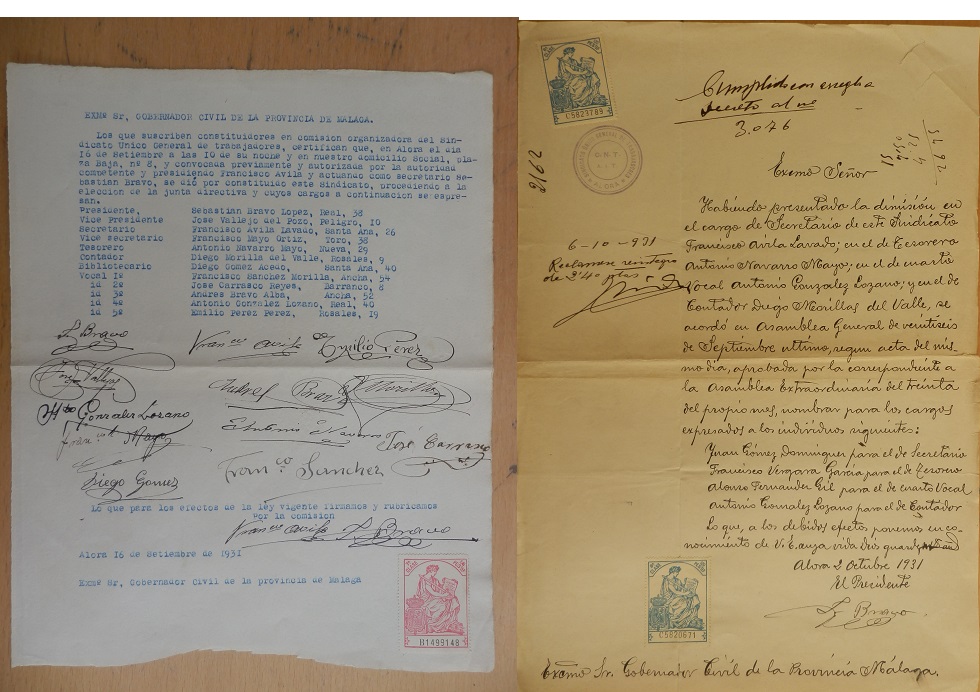 EXMº Sr, GOBERNADOR CIVIL DE LA PROVINCIA DE MALAGA.
Los que suscriben constituidores en comision organizadora del Sin-
dicato Unico General de trabajadores, certifican que, en Alora el dia
16 de Setiembre a las 10 de su noche y en nuestro domicilio Social, pla-
za Baja, nº 8, y convocada previamente y autorizada por la autoridad
competente y presidiendo Francisco Avila y actuando como secretario Se-
bastian Bravo, se dió por constituido este Sindicato, procediendo a la
eleccion de la junta directiva y cuyos cargos a continuacion se espre-
san.
Presidente, Sebastian Bravo Lopez, Real, 38
Vice Presidente Jose Vallejo del Pozo, Peligro, 10
Secretario Francisco Avila Lavado, Santa Ana, 26
Vice secretario Francisco Mayo Ortiz, Toro, 38
Tesorero Antonio Navarro Mayo, Nueva, 29
Contador Diego Morilla del Valle, Rosales, 9
Bibliotecario Diego Gomez Acedo, Santa Ana, 40
Vocal 1º Francisco Sanchez Morilla, Ancha, 54
id 2º Jose Carrasco Reyes, Barranco, 8
id 3º Andres Bravo Alba, Ancha, 52
id 4º Antonio Gonzalez Lozano, Real, 40
id 5º Emilio Perez Perez, Rosales, 19
S. Bravo
Francº Avila
Emilio Perez
Andres Bravo
Morilla
Antº Gonzalez Lozano
Antonio Navarro
José Carrasco
Mayo
Diego Gomez
Franco Sanchez
Lo que para los efectos de la ley vigente firmamos y rubricamos
Por la comision
Francº Avila S. Bravo
Alora 16 de Setiembre de 1931
Exmº Sr, Gobernador Civil de la provincia de Malaga
B1499149
C5823789
Cumplido con arreglo
Decreto al nº
3.076
2162
C.N.T.
A.I.T.
Excmo Señor
6-10-931
Reclamese reintegro
de 2'40 ptas
Habiendo presentado la dimisión en
el cargo de Secretario de este Sindicato
Francisco Avila Lavado; en el de Tesorero
Antonio Navarro Mayo; en el de cuarto
Vocal Antonio Gonzalez Lozano; y en el de
Contador Diego Morillas del Valle, se
acordó en Asamblea General de veintiseis
de Septiembre ultimo, segun acta del mis
mo dia, aprobada por la correspondiente a
la Asamblea Extraordinaria del treinta
del propio mes, nombrar para los cargos
expresados a los individuos siguientes:
Juan Gómez Dominguez para el de Secretario
Francisco Vergara García para el de Tesorero
Alonso Fernandez Gil para el de cuarto Vocal
Antonio Gonzalez Lozano para el de Contador
Lo que, a los debidos efectos ponemos en co-
nocimiento de V. E. cuya vida Dios guarde
Alora 2 Octubre 1931
El Presidente
S. Bravo
C5820671
Excmo Sr. Gobernador Civil de la Provincia Málaga.